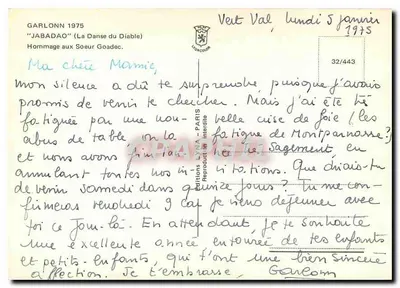 GARLONN 1975
"JABADAO" (La Danse du Diable)
Hommage aux Soeur Goadec.
Vert Val, lundi 5 janvier
1975
32/443
Ma chère Mamie,
mon silence a dû te surprendre puisque j'avais
promis de venir te chercher. Mais j'ai été très
fatiguée par une nouvelle crise de foie (les
abus de table ou la fatigue de Montparnasse?)
et nous avons fini l'an sagement, en
annulant toutes nos invitations. Que dirais-tu
de venir samedi dans quinze jours? Tu me confirmeras
vendredi 9 car je viens déjeuner avec
toi ce jour-là. En attendant, je te souhaite
une excellente année entourée de tes enfants
et petits-enfants, qui t'ont une bien sincère
affection. Je t'embrasse. Garlonn
PARIS
Reproduction interdite